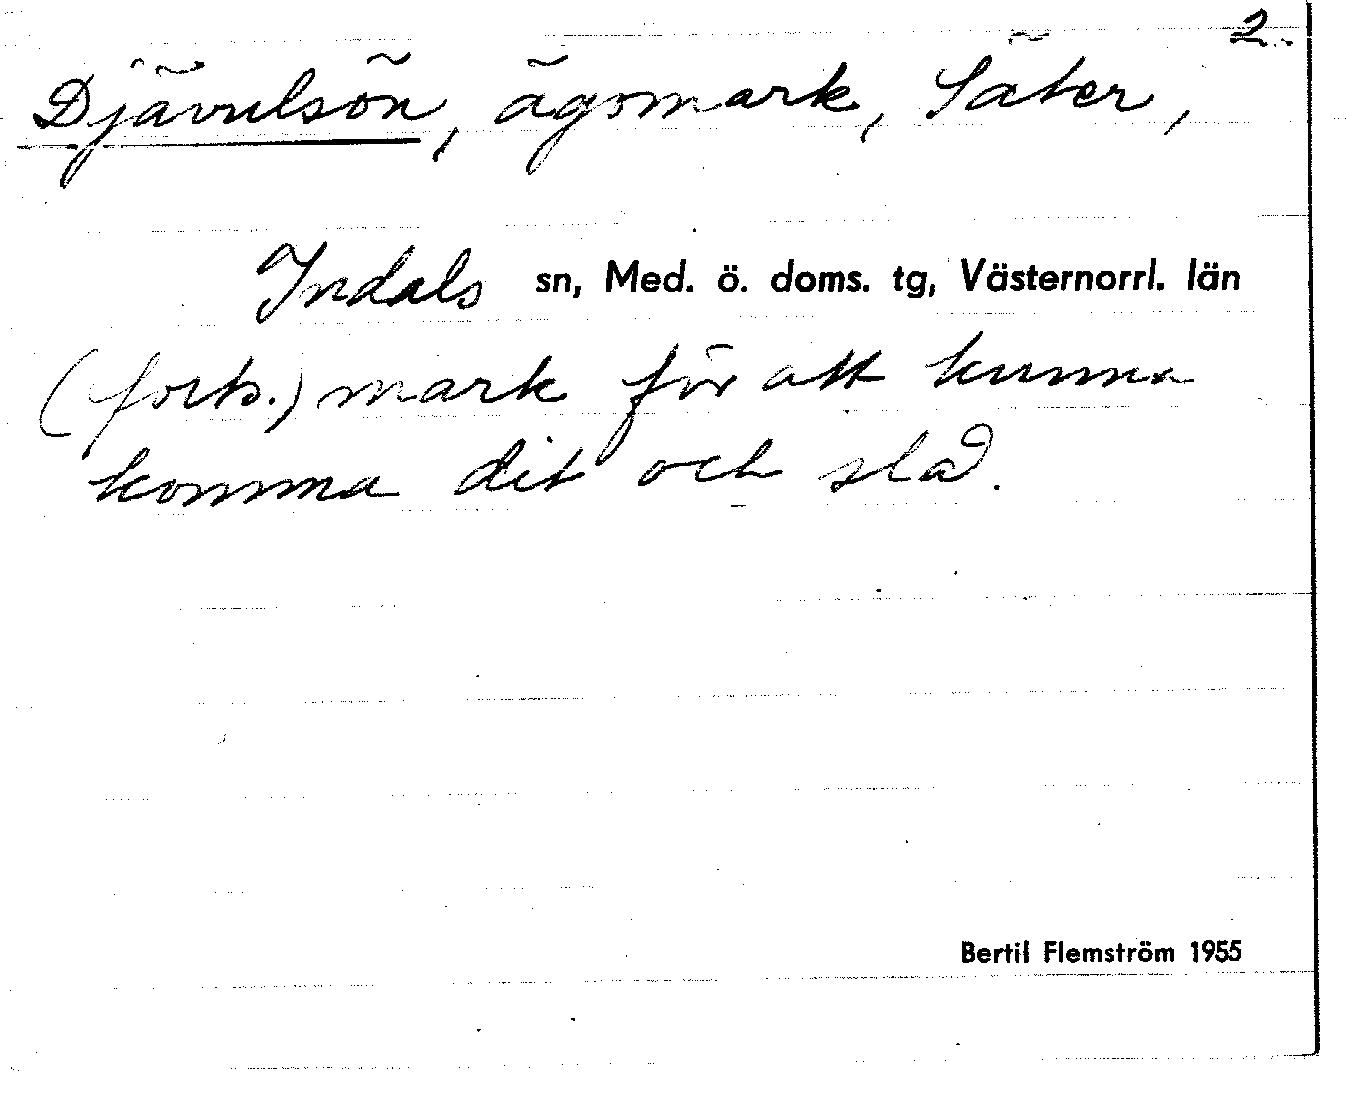 2.
Djävulsön, ägomark, Säter,
Indals sn, Med. ö. doms. tg, Västernorrl. län
(forts.) mark för att kunna
komma dit och slå.
Bertil Flemström 1955